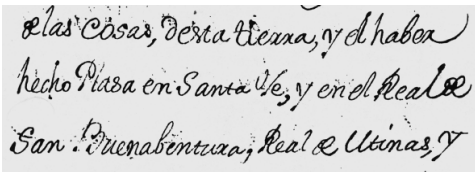 de las Cosas, desta tierra, y el haber
hecho Plasa en Santa Fe, y en el Real de
San Buenabentura, Real de Utinas, y